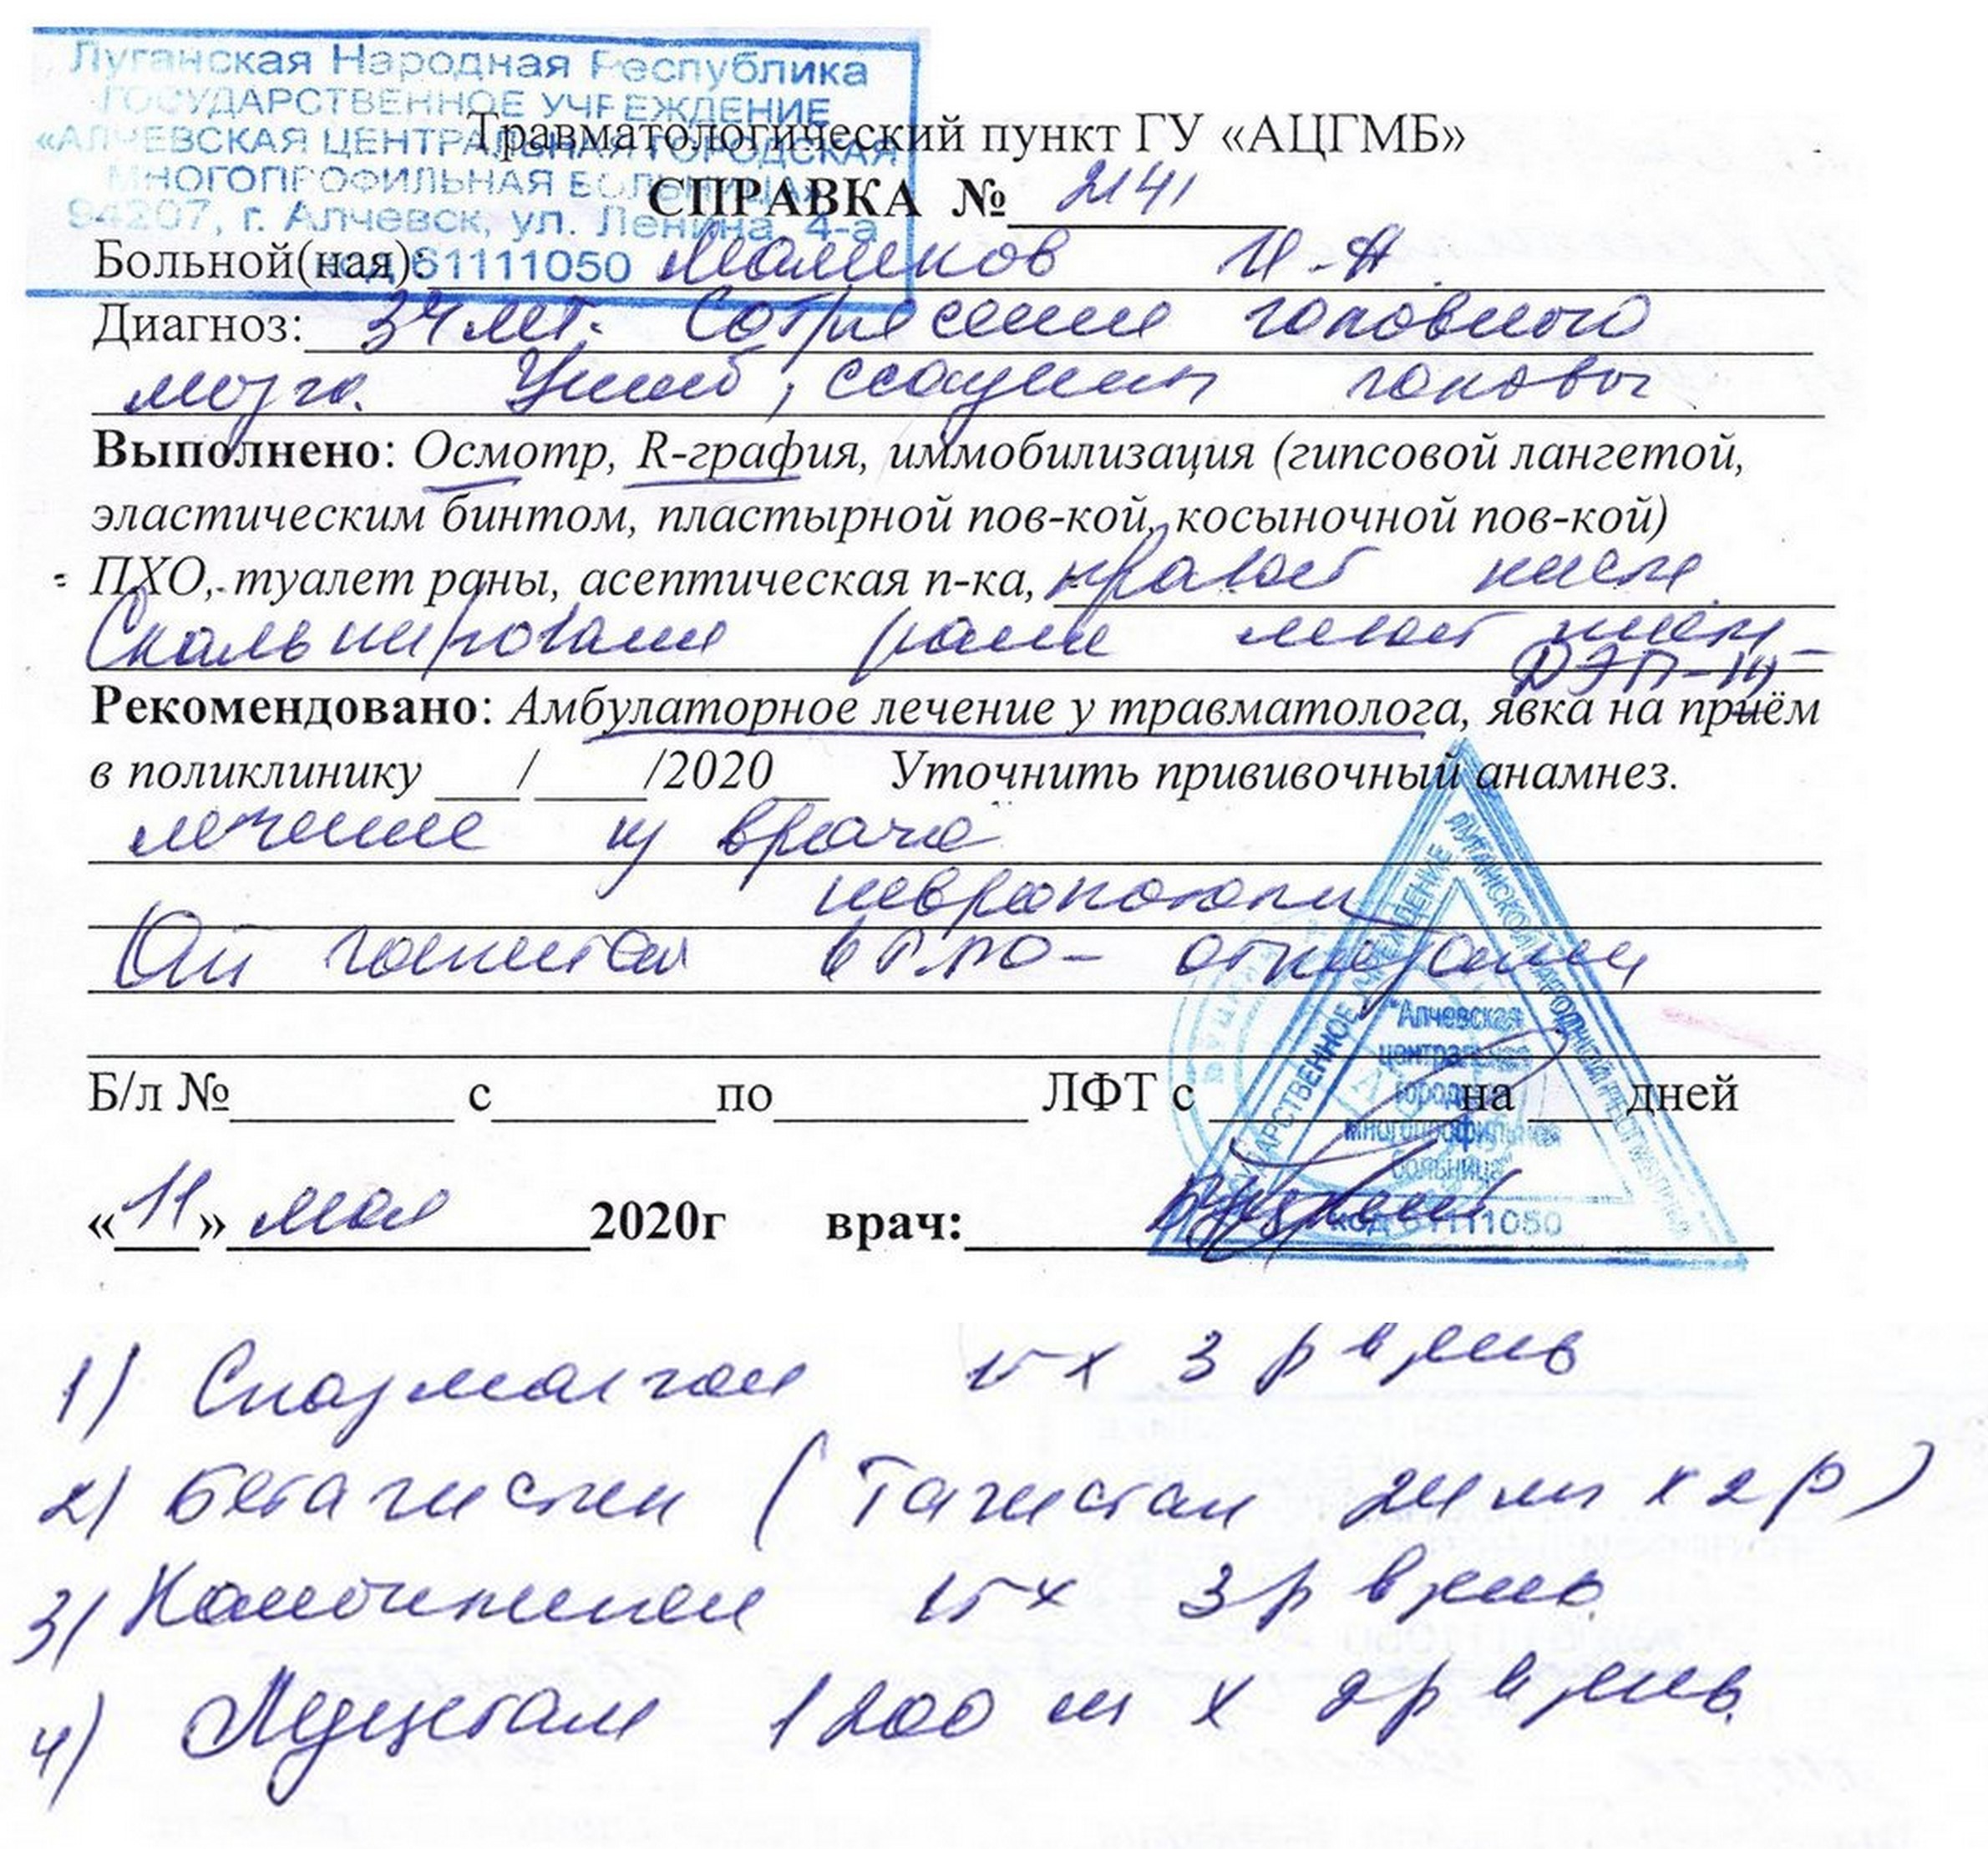 Луганская Народная Республика
ГОСУДАРСТВЕННОЕ УЧРЕЖДЕНИЕ
«АЛЧЕВСКАЯ ЦЕНТРАЛЬНАЯ ГОРОДСКАЯ
МНОГОПРОФИЛЬНАЯ БОЛЬНИЦА»
94207, г. Алчевск, ул. Ленина, 4-а
код 61111050
Травматологический пункт ГУ «АЦГМБ»
СПРАВКА № 2141
Больной(ная): Маликов И.А.
Диагноз: 34 лет. Сотрясение головного
мозга. Ушиб, ссадины головы
Выполнено: Осмотр, R-графия, иммобилизация (гипсовой лангетой,
эластическим бинтом, пластырной пов-кой, косыночной пов-кой)
ПХО, туалет раны, асептическая п-ка, правой кисти
Скальпированые раны левой
ДЭП-III
Рекомендовано: Амбулаторное лечение у травматолога, явка на приём
в поликлинику ___/____/2020__ Уточнить прививочный анамнез.
лечение у врача
невропатолога
От госпитал в отказался
Б/л №________ с________по_________ ЛФТ с _________на ___дней
«11» мая 2020г врач:
ГОСУДАРСТВЕННОЕ УЧРЕЖДЕНИЕ
ЛУГАНСКОЙ НАРОДНОЙ РЕСПУБЛИКИ
"Алчевская
центральная
городская
многопрофильная
больница"
код 61111050
1) Спазмалгон 1т х 3 р в день
2) Бетагистин (Тагистан 24 мг х 2 р)
3) 1т х 3 р в день
4) Луцетам 1200 мг х 2 р в день